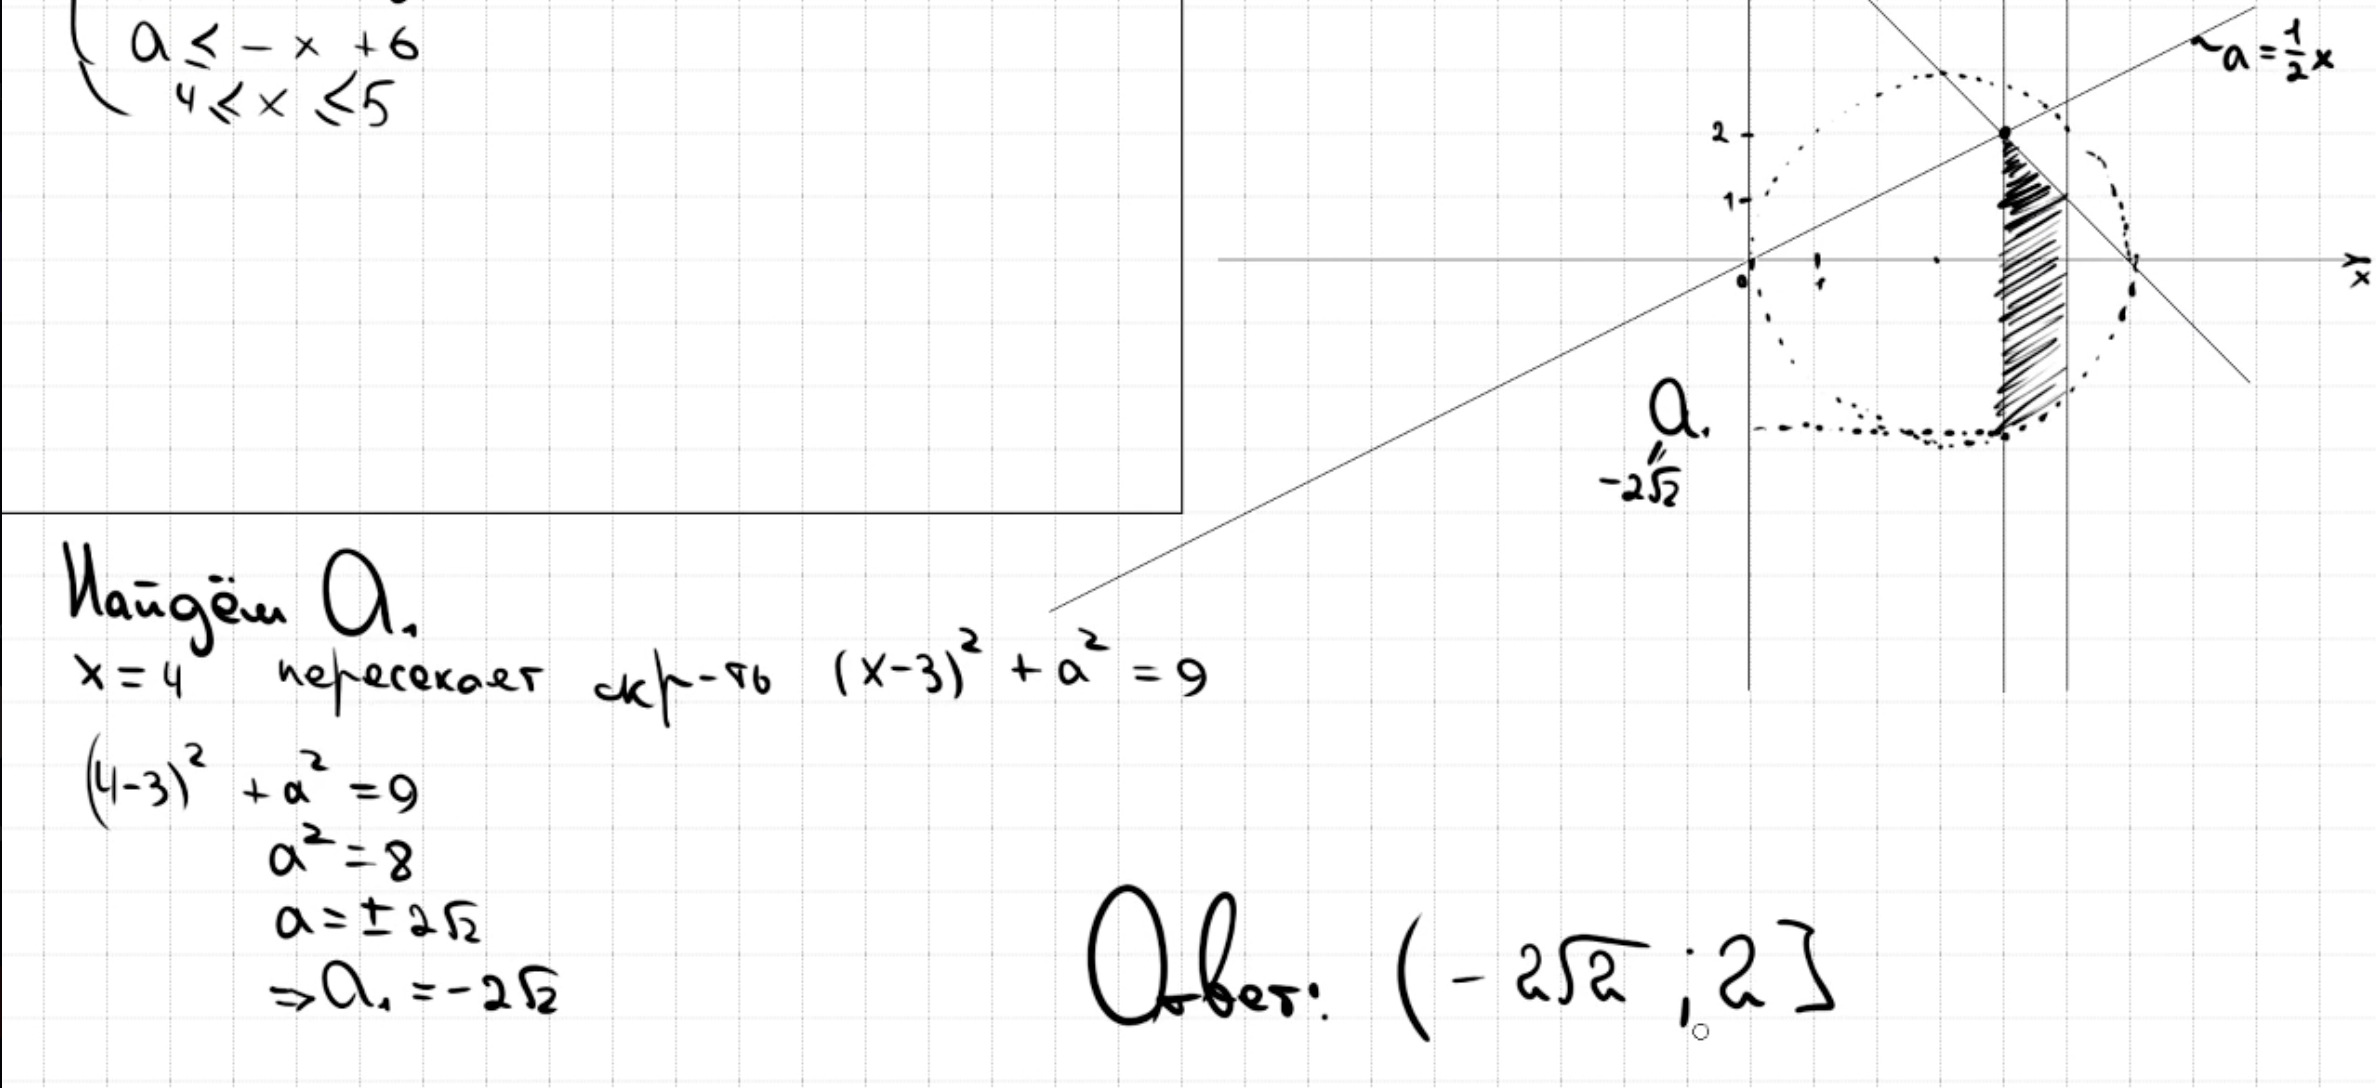 a ≤ - x + 6
4 ≤ x ≤ 5
a = 1/2 x
2
1
0
1
x
a₁
=
-2√2
Найдём a₁
x = 4 пересекает окр-ть (x-3)² + a² = 9
(4-3)² + a² = 9
a² = 8
a = ± 2√2
⇒ a₁ = -2√2
Ответ: (-2√2 ; 2]